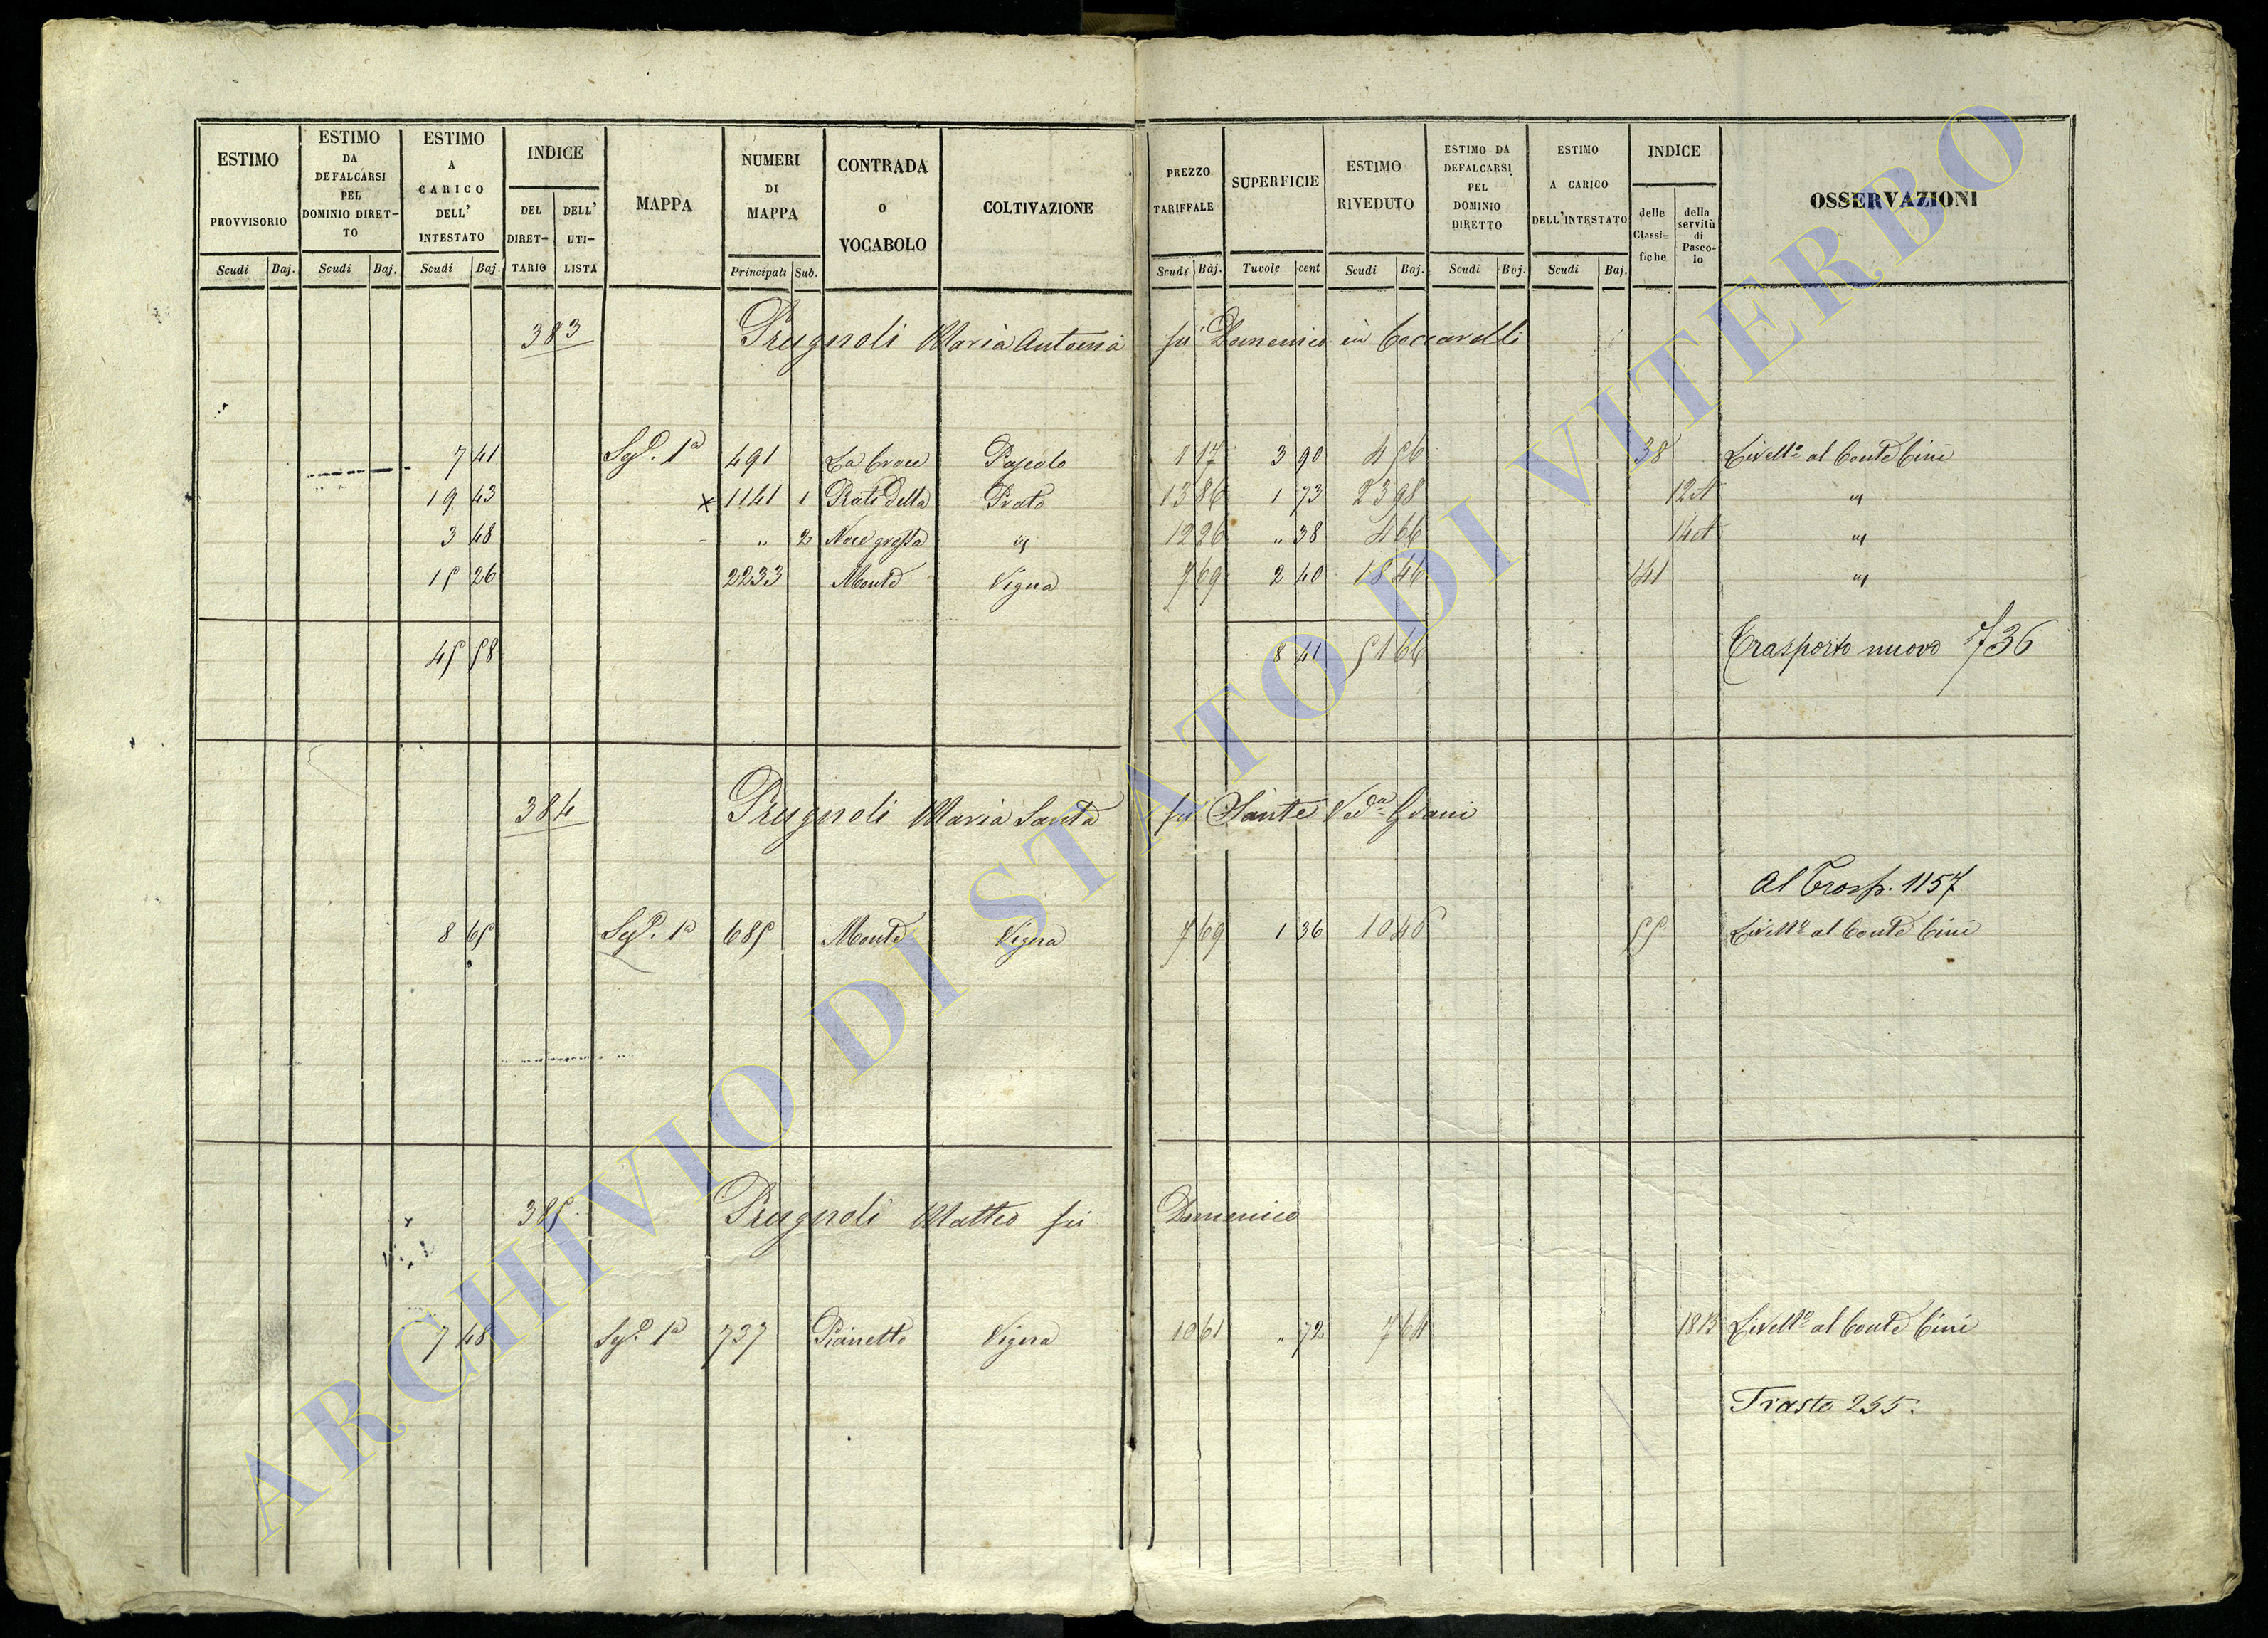 ESTIMO PROVVISORIO
Scudi Baj.
ESTIMO DA DEFALCARSI PEL DOMINIO DIRET-TO
Scudi Baj.
ESTIMO A CARICO DELL' INTESTATO
Scudi Baj.
INDICE
DEL DIRET-TARIO
DELL' UTI-LISTA
MAPPA
NUMERI DI MAPPA
Principali Sub.
CONTRADA o VOCABOLO
COLTIVAZIONE
PREZZO TARIFFALE
Scudi Baj.
SUPERFICIE
Tavole cent
ESTIMO RIVEDUTO
Scudi Baj.
ESTIMO DA DEFALCARSI PEL DOMINIO DIRETTO
Scudi Baj.
ESTIMO A CARICO DELL'INTESTATO
Scudi Baj.
INDICE
delle Classi=fiche
della servitù di Pasco-lo
OSSERVAZIONI
383 Prugnoli Maria Antonia fù Domenico in Ceccarelli
7 41 1ª 491 La Croce Pascolo 1 17 3 90 4 56 38 Livellº al Conte Cini
19 43 x 1141 1 Prati della Prato 13 86 1 73 23 98 "
3 48 " 2 Noce grossa " 12 26 " 38 4 66 "
15 26 2233 Monte Vigna 7 69 2 40 18 46 141 "
45 58 8 41 51 66 Trasporto nuovo 736
384 Prugnoli Maria Santa fù Sante Vedª Grani
Al Trasp. 1157
8 65 1ª 685 Monte Vigna 7 69 1 36 10 46 55 Livellº al Conte Cini
385 Prugnoli Matteo fù Domenico
7 48 1ª 737 Pianetto Vigna 10 61 " 72 7 64 Livellº al Conte Cini
Trasto 255.
ARCHIVIO DI STATO DI VITERBO